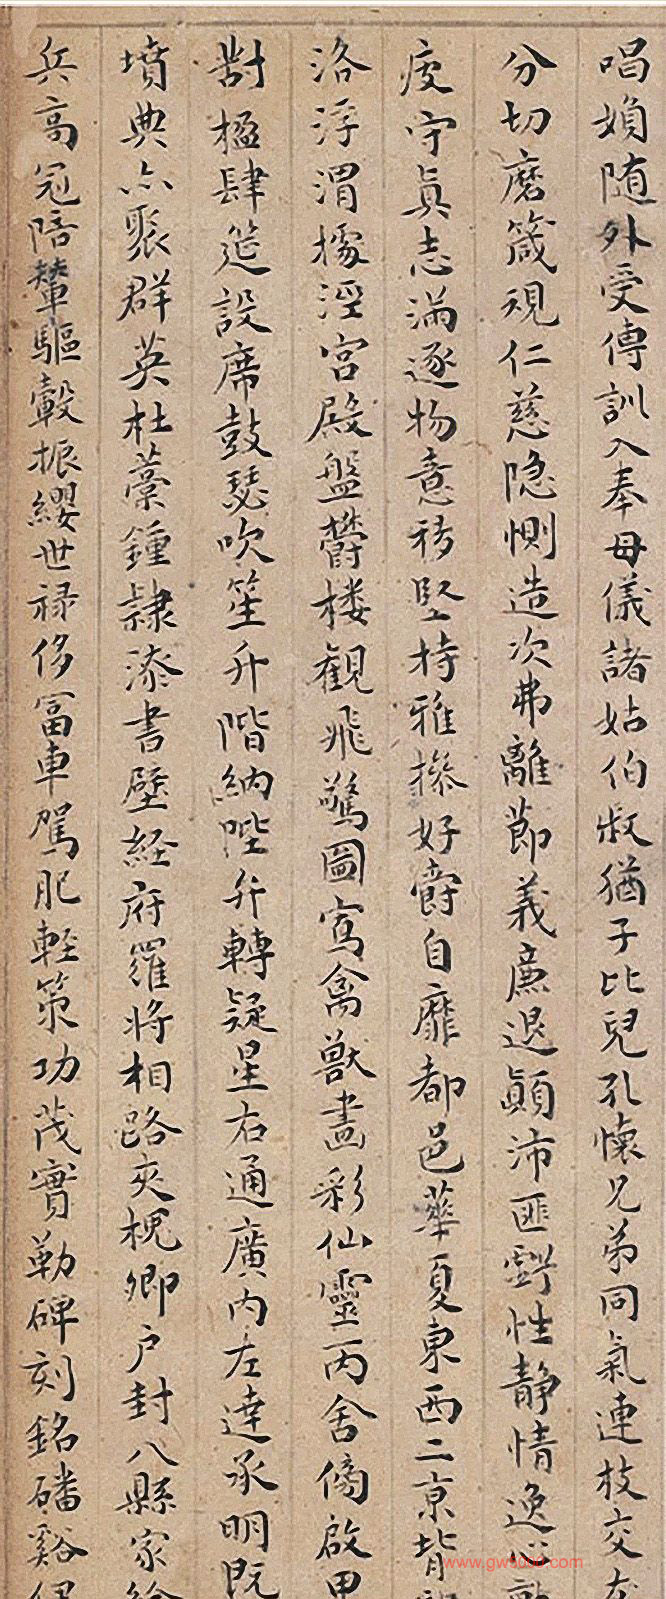 唱婦随外受傅訓入奉母儀諸姑伯叔猶子比兒孔懷兄弟同氣連枝交友
分切磨箴規仁慈隐惻造次弗離節義廉退顛沛匪虧性静情逸心動
疲守真志満逐物意移堅持雅操好爵自靡都邑華夏東西二京背
洛浮渭據涇宮殿盤欝楼觀飛驚圖寫禽獸畫彩仙靈丙舍傍啟甲
對楹肆筵設席鼓瑟吹笙升階納陛弁轉疑星右通廣内左達承明既
墳典亦聚群英杜藁鍾隷漆書壁経府羅将相路夾槐卿户封八縣家給
兵高冠陪輦驅轂振纓世禄侈富車駕肥輕策功茂實勒碑刻銘磻谿
www.gw8000.com